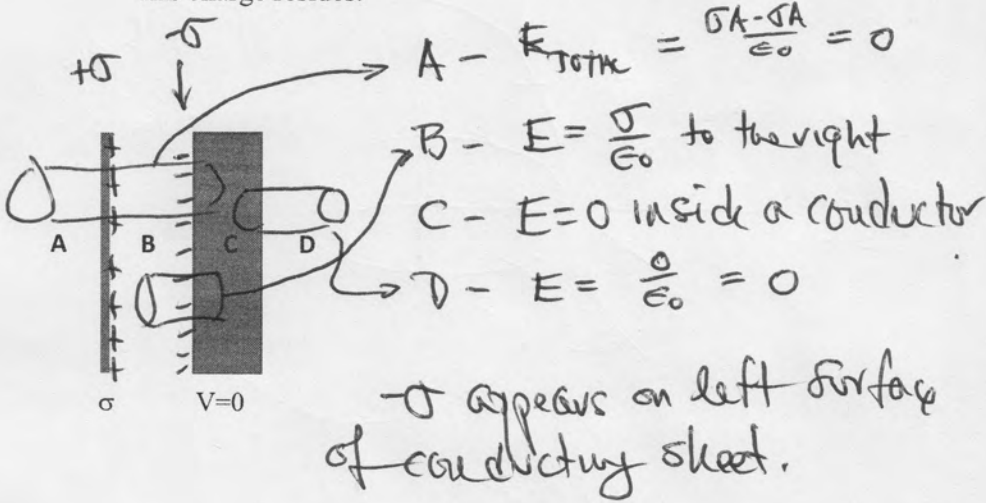 -σ
+σ
A - E_TOTAL = σA-σA/ε₀ = 0
B - E = σ/ε₀ to the right
C - E=0 inside a conductor
D - E = 0/ε₀ = 0
A B C D
σ V=0
-σ appears on left surface
of conducting sheet.